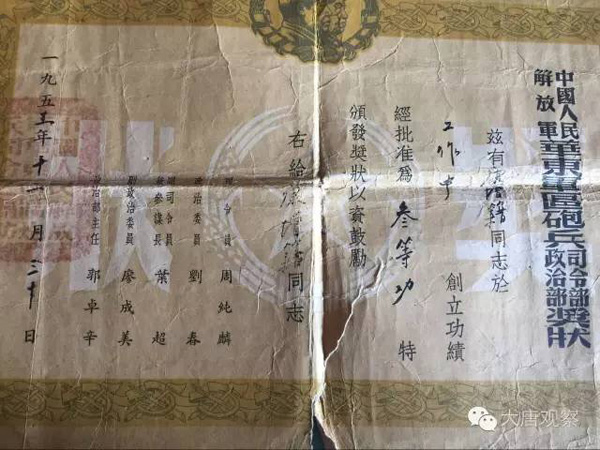 中國人民解放軍華東軍區砲兵司令部政治部奬狀
茲有籍同志於
工作中
創立功績
經批准爲叁等功特
頒發奬狀以資鼓勵
右給籍同志
司令員 周純麟
政治委員 劉春
副司令員兼參謀長 葉超
副政治委員 廖成美
政治部主任 郭卓辛
一九五三年十一月三十日
大唐观察